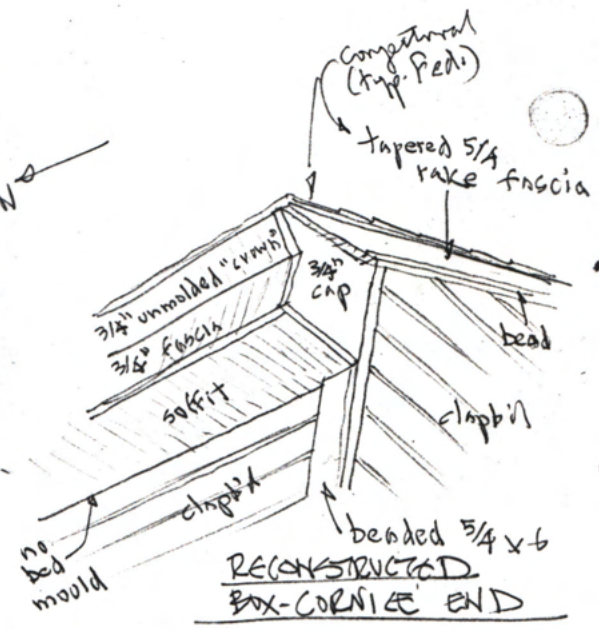 conjectural
(typ. Fed.)
tapered 5/4
rake fascia
N
3/4" unmolded "crown"
3/4" fascia
3/4"
cap
bead
soffit
clapb'd
clapb'd
no
bed
mould
beaded 5/4 x 6
RECONSTRUCTED
BOX-CORNICE END